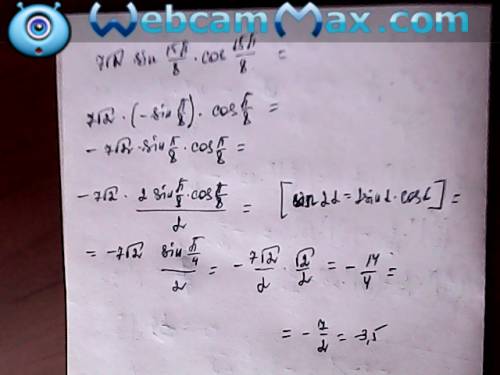 WebcamMax.com
7√2 sin 15π/8 · cos 15π/8 =
7√2 · (-sin π/8) · cos π/8 =
- 7√2 · sin π/8 · cos π/8 =
-7√2 · 2 sin π/8 · cos π/8 / 2 = [sin 2α = 2 sin α · cos α] =
= -7√2 sin π/4 / 2 = - 7√2/2 · √2/2 = - 14/4 =
= - 7/2 = -3,5